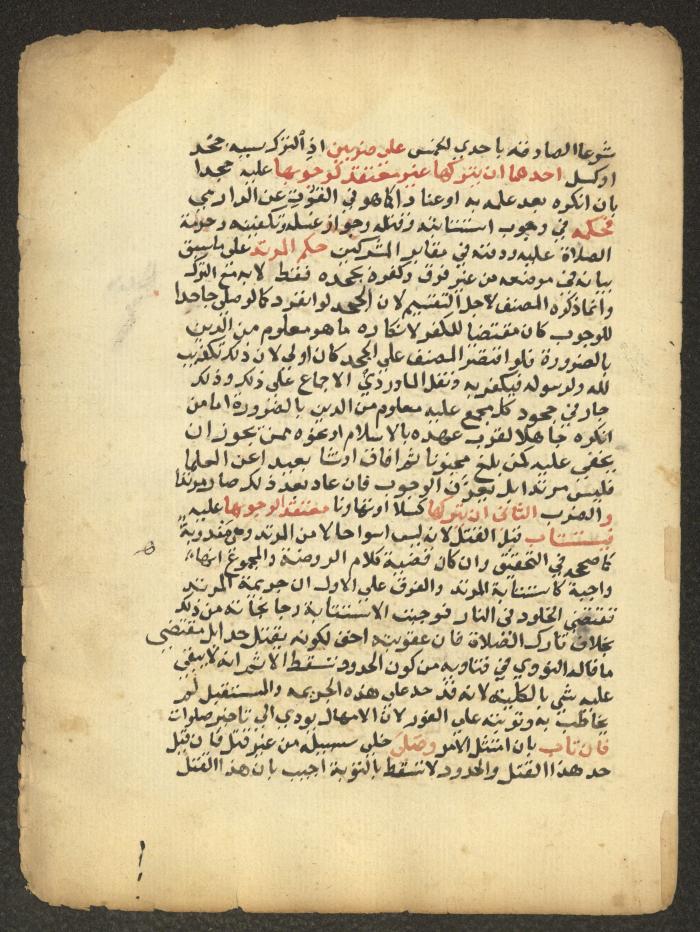 شرعا الصادقة باحدي الخمس علي ضربين اذ الترك سببه جحد
او كسل احدهما ان يتركها غير معتقد لوجوبها عليه جحدا
بان انكره بعد علمه به او عنادا كما هو في القوت عن الدارمي
فحكمه في وجوب استتابته وقتله وجواز غسله وتكفينه وحرمة
الصلاة عليه ودفنه في مقابر المشركين حكم المرتد علي ما سبق
بيانه في موضعه من غير فرق وكفره بجحده فقط لا به مع الترك
وانما ذكره المصنف لاجل التقسيم لان الجحد لو انفرد كما لو صلي جاحدا
للوجوب كان مقتضيا للكفر لانكاره ما هو معلوم من الدين
بالضرورة فلو اقتصر المصنف علي الجحد كان اولي لان ذلك تكذيب
لله ولرسوله فيكفر به ونقل الماوردي الاجماع علي ذلك وذلك
جار في جحود كل مجمع عليه معلوم من الدين بالضرورة اما من
انكره جاهلا لقرب عهده بالاسلام او نحوه ممن يجوز ان
يخفي عليه كمن بلغ مجنونا ثم افاق او نشا بعيدا عن العلما
فليس مرتدا بل يعرف الوجوب فان عاد بعد ذلك صار مرتدا
والضرب الثاني ان يتركها كسلا او تهاونا معتقدا لوجوبها عليه
فيستتاب قبل القتل لانه ليس اسوا حالا من المرتد وهي مندوبة
كما صححه في التحقيق وان كان قضية كلام الروضة والمجموع انها
واجبة كاستتابة المرتد والفرق علي الاول ان جريمة المرتد
تقتضي الخلود في النار فوجبت الاستتابة رجا نجاته من ذلك
بخلاف تارك الصلاة فان عقوبته اخف لكونه يقتل حدا بل مقتضي
ما قاله النووي في فتاويه من كون الحدود تسقط الاثم انه لا يبقي
عليه شي بالكلية لانه قد حد علي هذه الجريمة والمستقبل لم
يخاطب به وتوبته علي الفور لان الامهال يودي الي تاخير صلوات
فان تاب بان امتثل الامر وصلي خلي سبيله من غير قتل فان قيل
حد هذا القتل والحدود لا تسقط بالتوبة اجيب بان هذا القتل